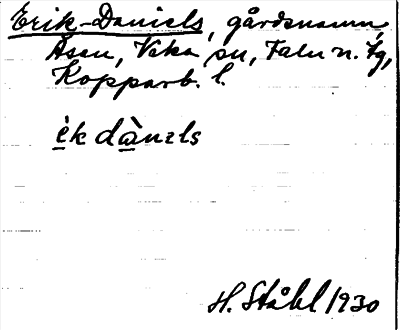 Erik-Daniels, gårdsnamn,
Åsen, Vika sn, Falu n. tg,
Kopparb. l.
èk dànɪls
H. Ståhl 1930